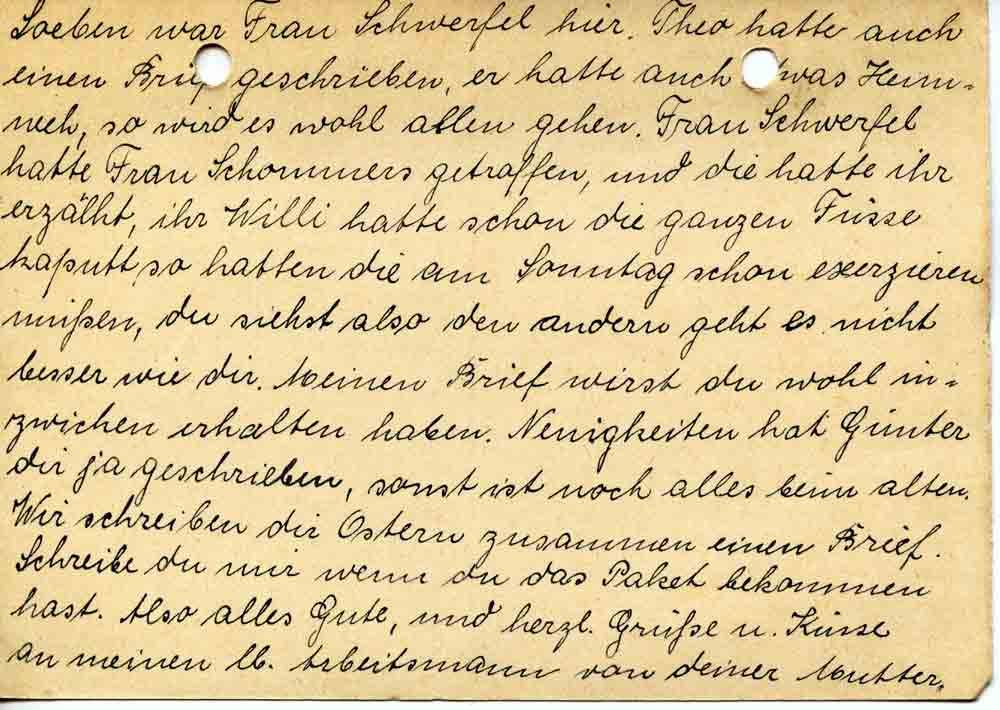 Soeben war Frau Schwerfel hier. Theo hatte auch
einen Brief geschrieben, er hatte auch etwas Heim-
weh, so wird es wohl allen gehen. Frau Schwerfel
hatte Frau Schommers getroffen, und die hatte ihr
erzälht, ihr Willi hatte schon die ganzen Füsse
kaputt, so hatten die am Sonntag schon exerzieren
müßen, du siehst also den andern geht es nicht
besser wie dir. Meinen Brief wirst du wohl in-
zwichen erhalten haben. Neuigkeiten hat Günter
dir ja geschrieben, sonst ist noch alles beim alten.
Wir schreiben dir Ostern zusammen einen Brief.
Schreibe du mir wenn du das Paket bekommen
hast. Also alles Gute, und herzl. Grüße u. Küsse
an meinen lb. Arbeitsmann von deiner Mutter.